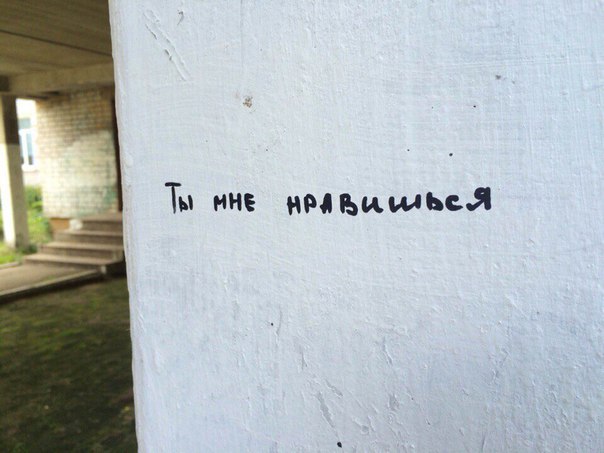 Ты мне нравишься